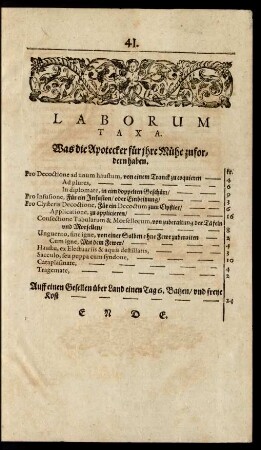 41.
LABORUM
TAXA.
Was die Apotecker für jhre Mühe zufor-
dern haben.
kr.
Pro Decoctione ad unum haustum, von einem Tranck zu coquieren 4
Ad plures, 6
In diplomate, in ein doppelten Geschürr/
Pro Infusione, Für ein Infusion/ oder Einbeitzung/ 3
Pro Clysteris Decoctione, Für ein Decoction zum Clystier/ 6
Applicatione, zu applicieren/ 16
Confectione Tabularum & Morsellorum, von zubereitung der Täfeln
und Morsellen/ 8
Unguento, sine igne, von einer Salben ohne Fewr zubereiten 2
Cum igne, Mit dem Fewer/ 4
Haustu, ex Electuariis & aquis destillatis, 3
Sacculo, seu peppa cum syndone,
Cataplasmate, 4
Tragemate, 2
Auff einen Gesellen über Land einen Tag 6. Batzen/ und freye
Kost 24
ENDE.